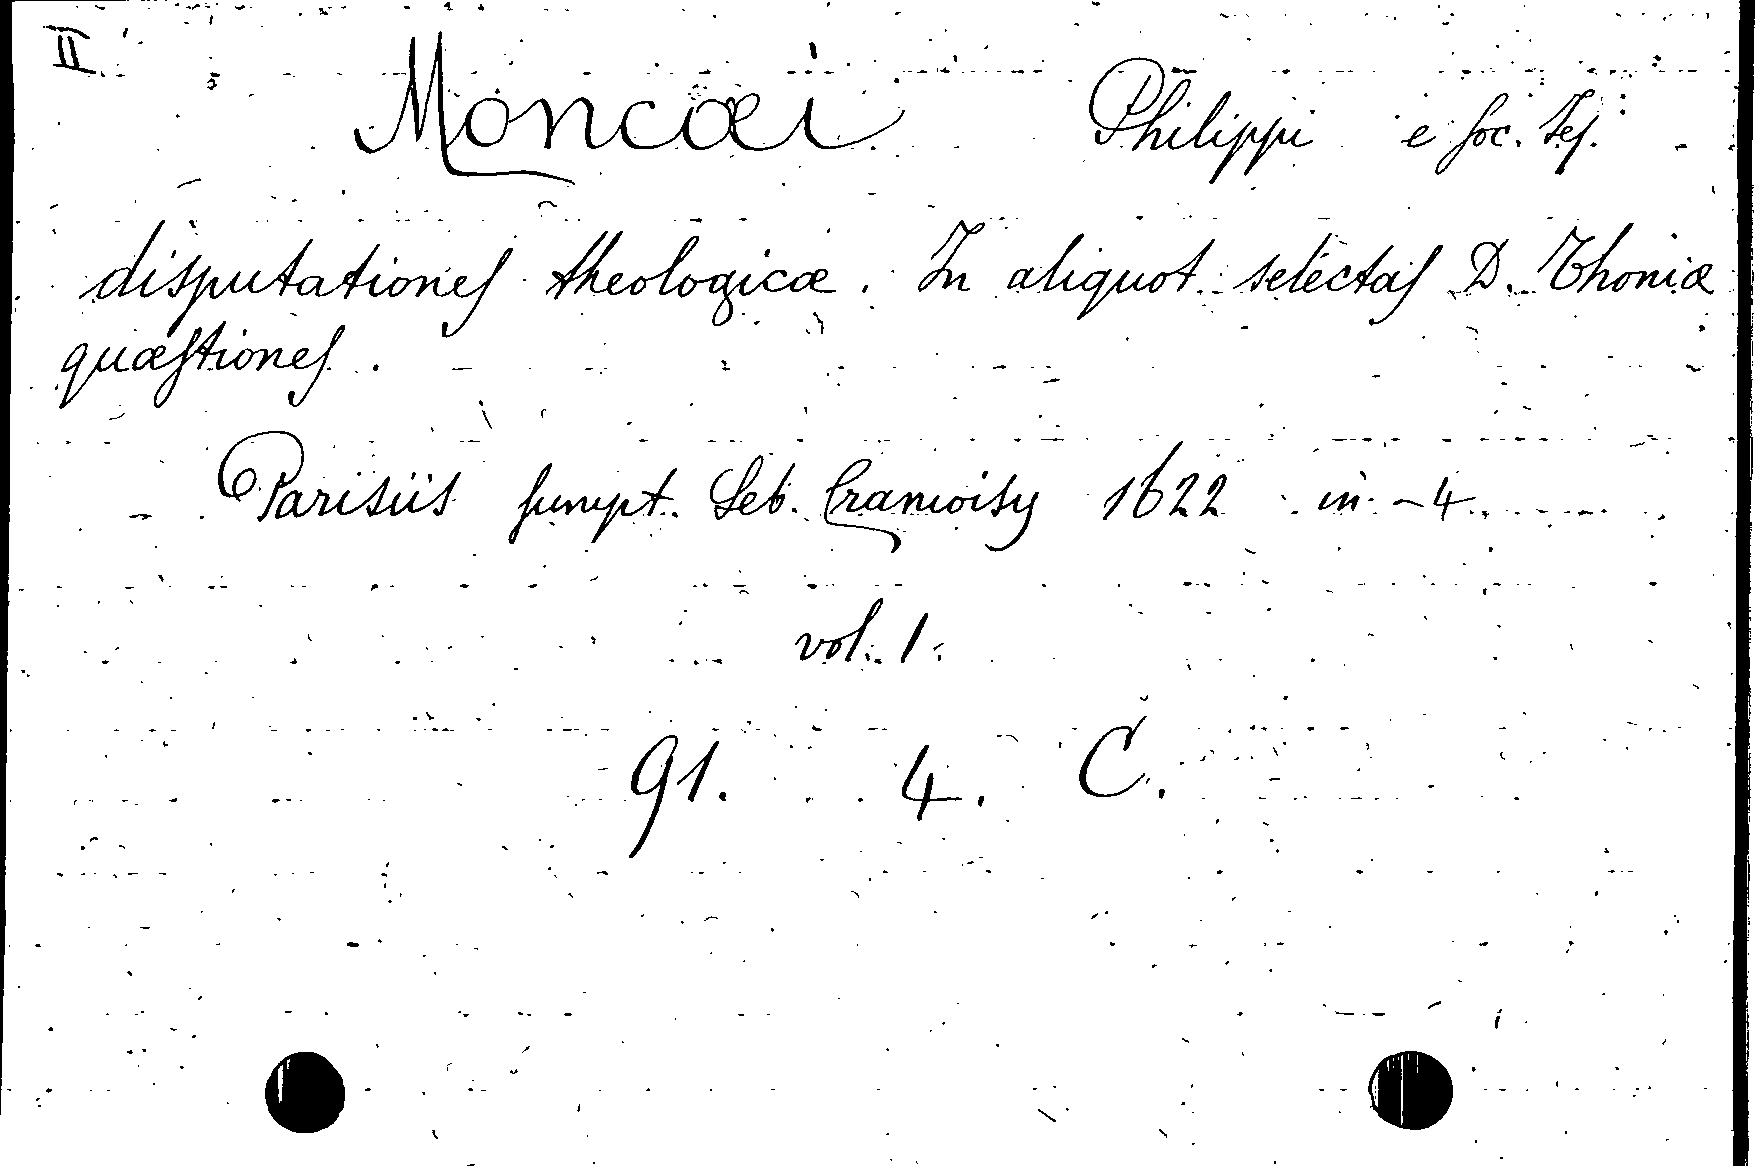 II
Moncæi Philippi e soc. Jes.
disputationes theologicæ. In aliquot selectas D. Thoniæ
quæstiones.
Parisiis sumpt. Seb. Cramoisy 1622 in-4
vol. 1.
91. 4. C.